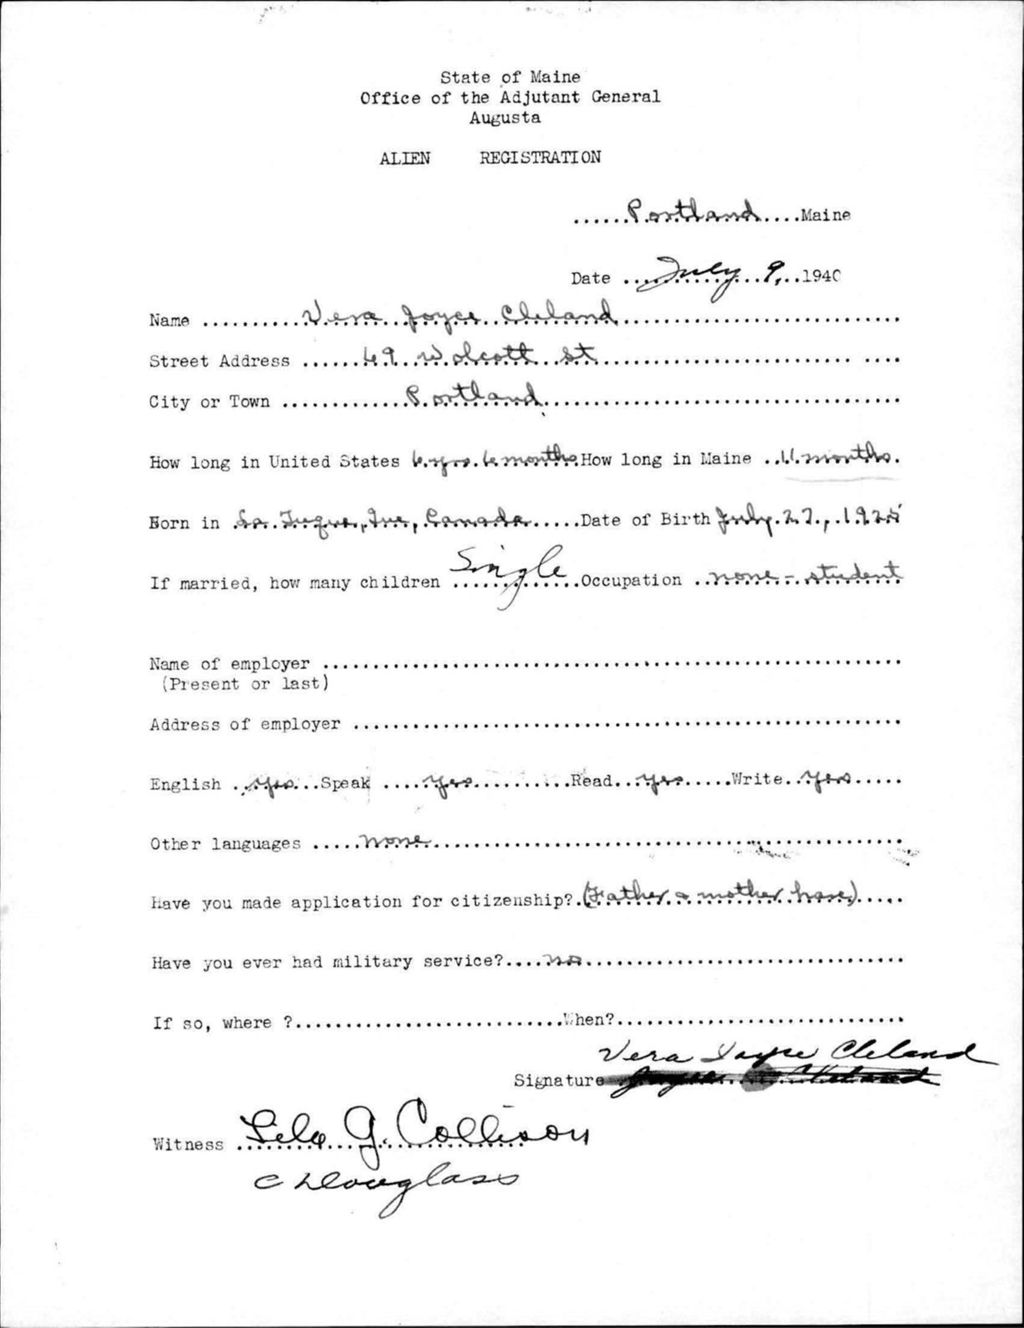 State of Maine
Office of the Adjutant General
Augusta
ALIEN REGISTRATION
......Portland....Maine
Date ...July 9,..1940
Name ..........Vera Joyce Cleland..............................
Street Address ......69 Wolcott St..............................
City or Town .............Portland..............................
How long in United States 6 yrs. 6 months How long in Maine ..11 months.
Born in La Tuque, Que, Canada.....Date of Birth July 27, 1925
If married, how many children ....Single....Occupation ..none - student
Name of employer ..............................
(Present or last)
Address of employer ..............................
English ..yes...Speak ....yes..........Read...yes.....Write..yes.....
Other languages .....none..............................
Have you made application for citizenship?.(Father & mother have).....
Have you ever had military service?....no..............................
If so, where ?..............................When?..............................
Vera Joyce Cleland
Signature
Witness Lela G. Collison
C Douglass